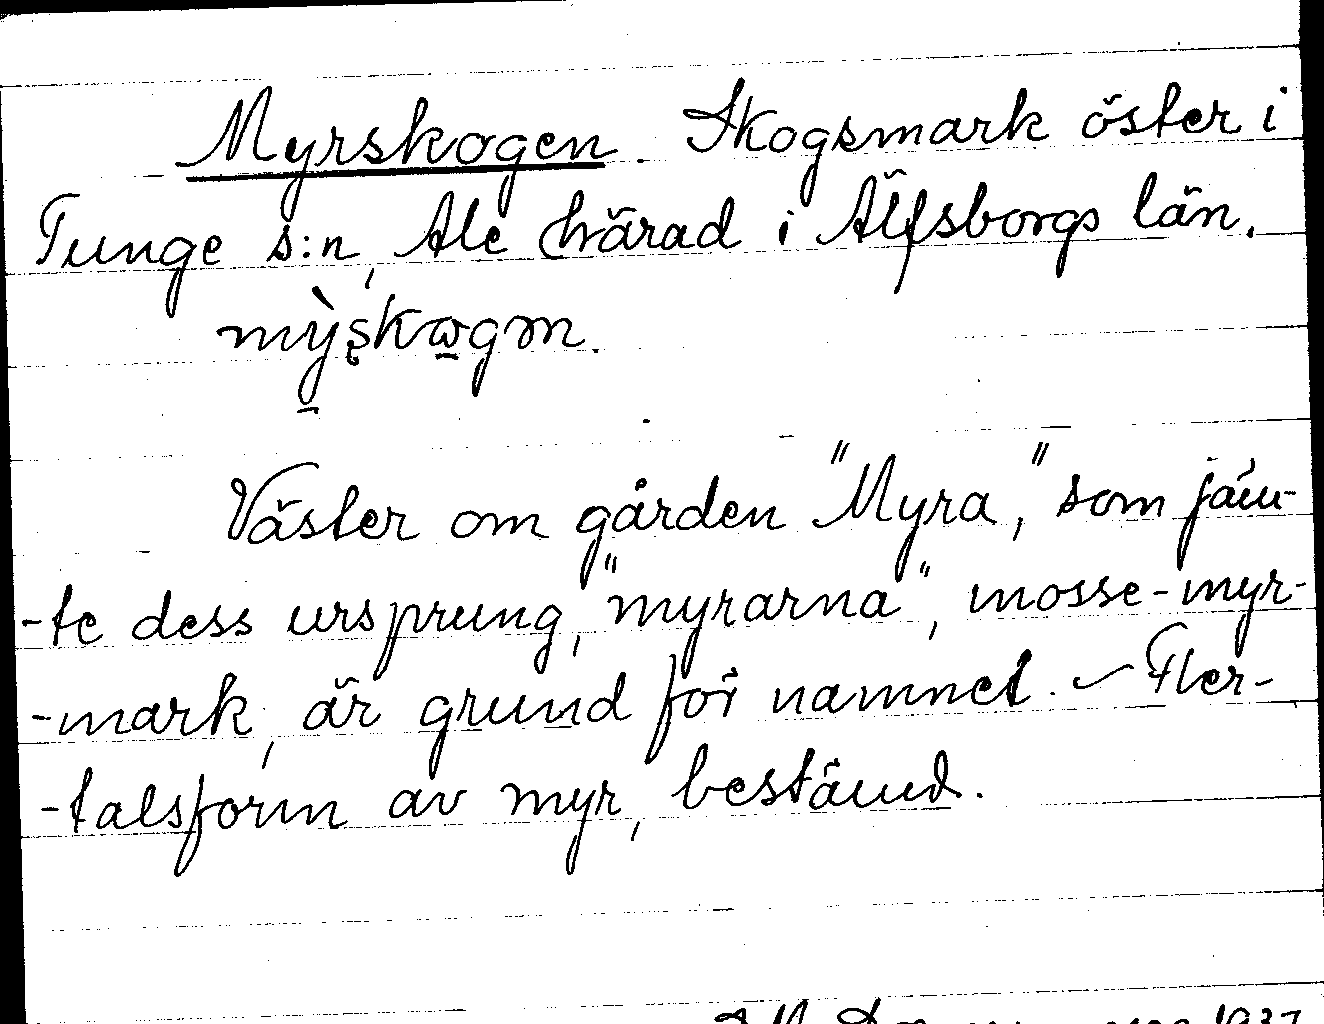 Myrskogen. Skogsmark öster i
Tunge s:n, Ale härad i Älfsborgs län.
mỳskωgən.
Väster om gården "Myra," som jäm-
-te dess ursprung, "myrarna", mosse-myr-
-mark, är grund för namnet. ~ Fler-
-talsform av myr, bestämd.
1937